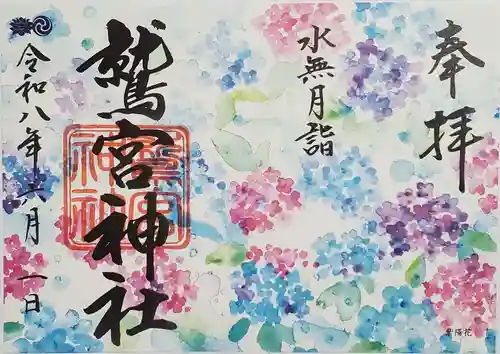 奉拝
水無月詣
鷲宮神社
令和八年六月一日
紫陽花